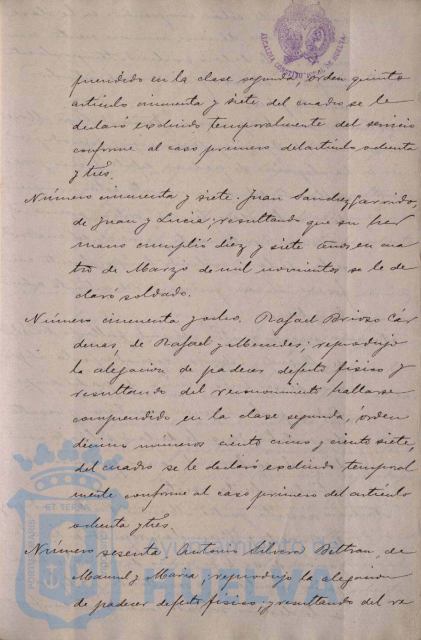 ALCALDIA CONSTITUCIONAL DE HUELVA
prendido en la clase segunda, orden quinto
artículo cincuenta y siete del cuadro se le
declaró excluido temporalmente del servicio
conforme al caso primero del artículo ochenta
y tres.
Número cincuenta y siete. Juan Sanchez Garrido,
de Juan y Lucia; resultando que su her
mano cumplió diez y siete años en cua
tro de Marzo de mil novecientos se le de
claró soldado.
Número cincuenta y ocho. Rafael Brioso Cár
denas, de Rafael y Mercedes; reprodujo
la alegacion de padecer defecto fisico y
resultando del reconocimiento hallarse
comprendido en la clase segunda, orden
décimo números ciento cinco y ciento siete,
del cuadro se le declaró excluido temporal
mente conforme al caso primero del artículo
ochenta y tres.
Número sesenta, Antonio Silvera Beltran, de
Manuel y Maria; reprodujo la alegacion
de padecer defecto fisico; y resultando del re
Ayuntamiento de
HUELVA